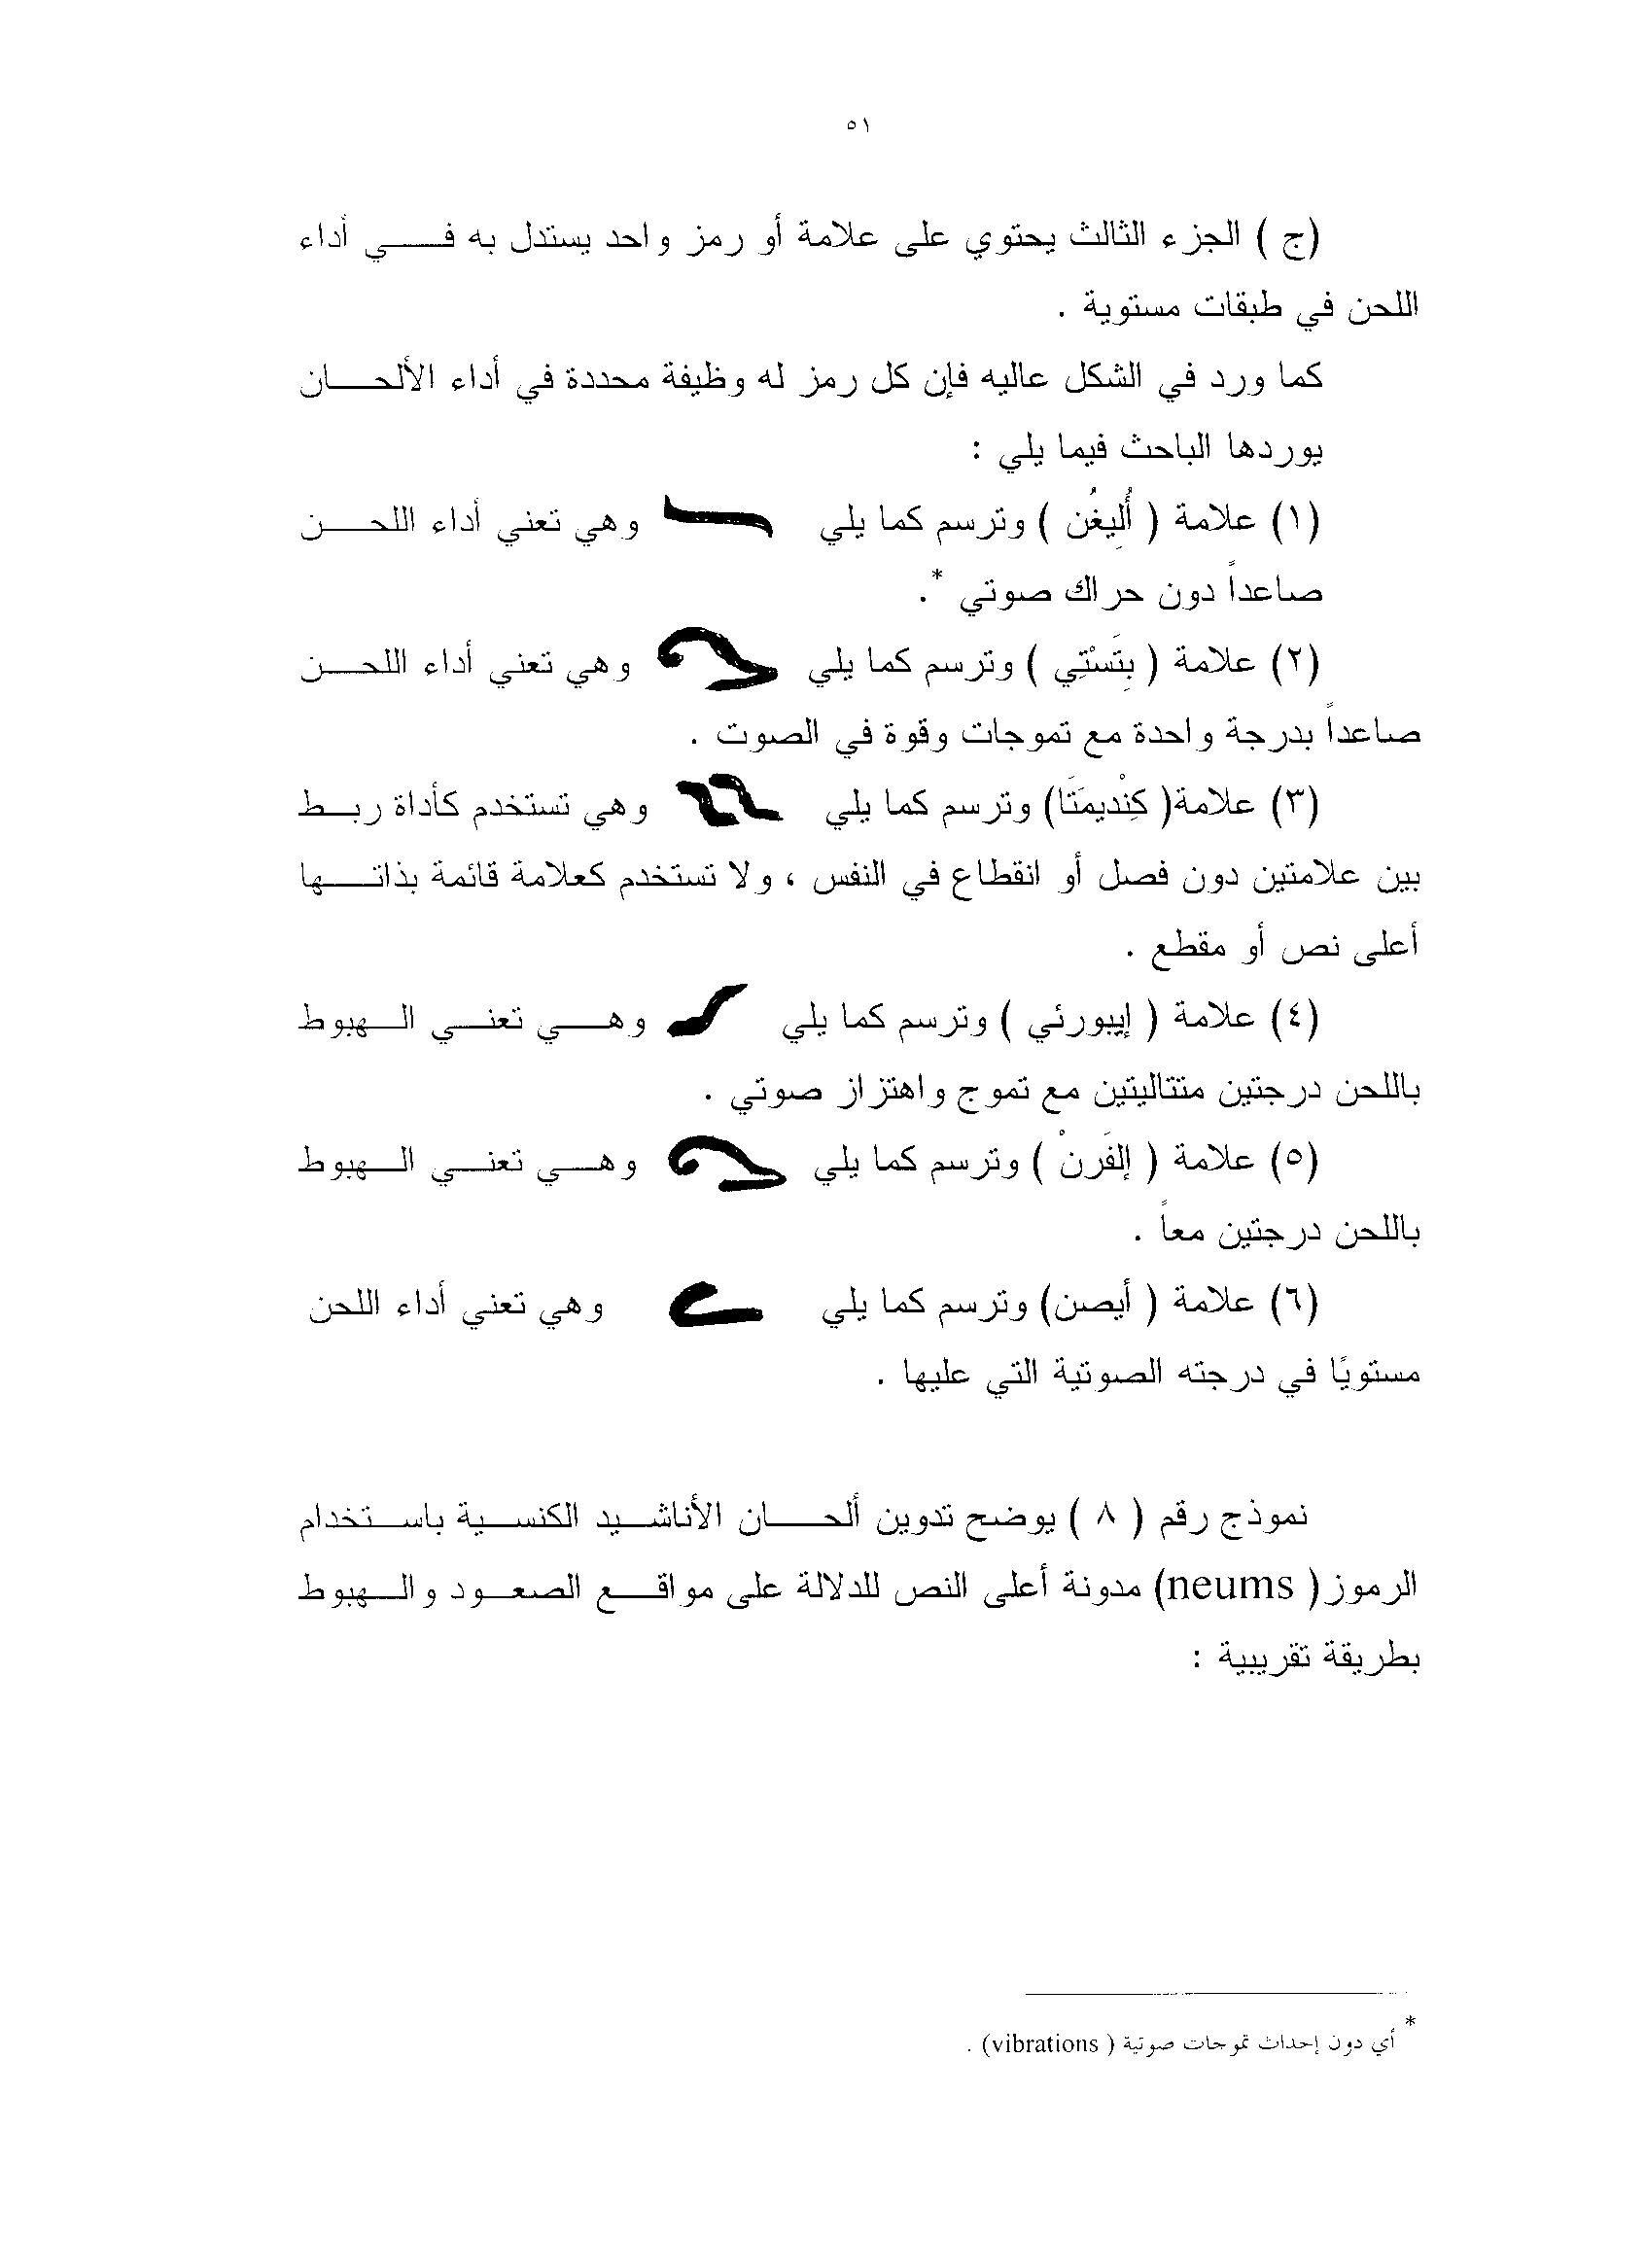 ٥١
(ج ) الجزء الثالث يحتوي على علامة أو رمز واحد يستدل به فـــي أداء
اللحن في طبقات مستوية .
كما ورد في الشكل عاليه فإن كل رمز له وظيفة محددة في أداء الألحـــان
يوردها الباحث فيما يلي :
(١) علامة ( أُلِيغُن ) وترسم كما يلي وهي تعني أداء اللحـــن
صاعداً دون حراك صوتي *.
(٢) علامة ( بِتَسْتِي ) وترسم كما يلي وهي تعني أداء اللحـــن
صاعداً بدرجة واحدة مع تموجات وقوة في الصوت .
(٣) علامة( كِنْديمَتَا) وترسم كما يلي وهي تستخدم كأداة ربـــط
بين علامتين دون فصل أو انقطاع في النفس ، ولا تستخدم كعلامة قائمة بذاتـــها
أعلى نص أو مقطع .
(٤) علامة ( إيبورئي ) وترسم كما يلي وهـــي تعنـــي الـــهبوط
باللحن درجتين متتاليتين مع تموج واهتزاز صوتي .
(٥) علامة ( إلفَرنْ ) وترسم كما يلي وهـــي تعنـــي الـــهبوط
باللحن درجتين معاً .
(٦) علامة ( أيصن) وترسم كما يلي وهي تعني أداء اللحن
مستويًا في درجته الصوتية التي عليها .
نموذج رقم ( ٨ ) يوضح تدوين ألحـــان الأناشـــيد الكنســـية باســـتخدام
الرموز( neums) مدونة أعلى النص للدلالة على مواقـــع الصعـــود والـــهبوط
بطريقة تقريبية :
* أي دون إحداث تموجات صوتية ( vibrations) .